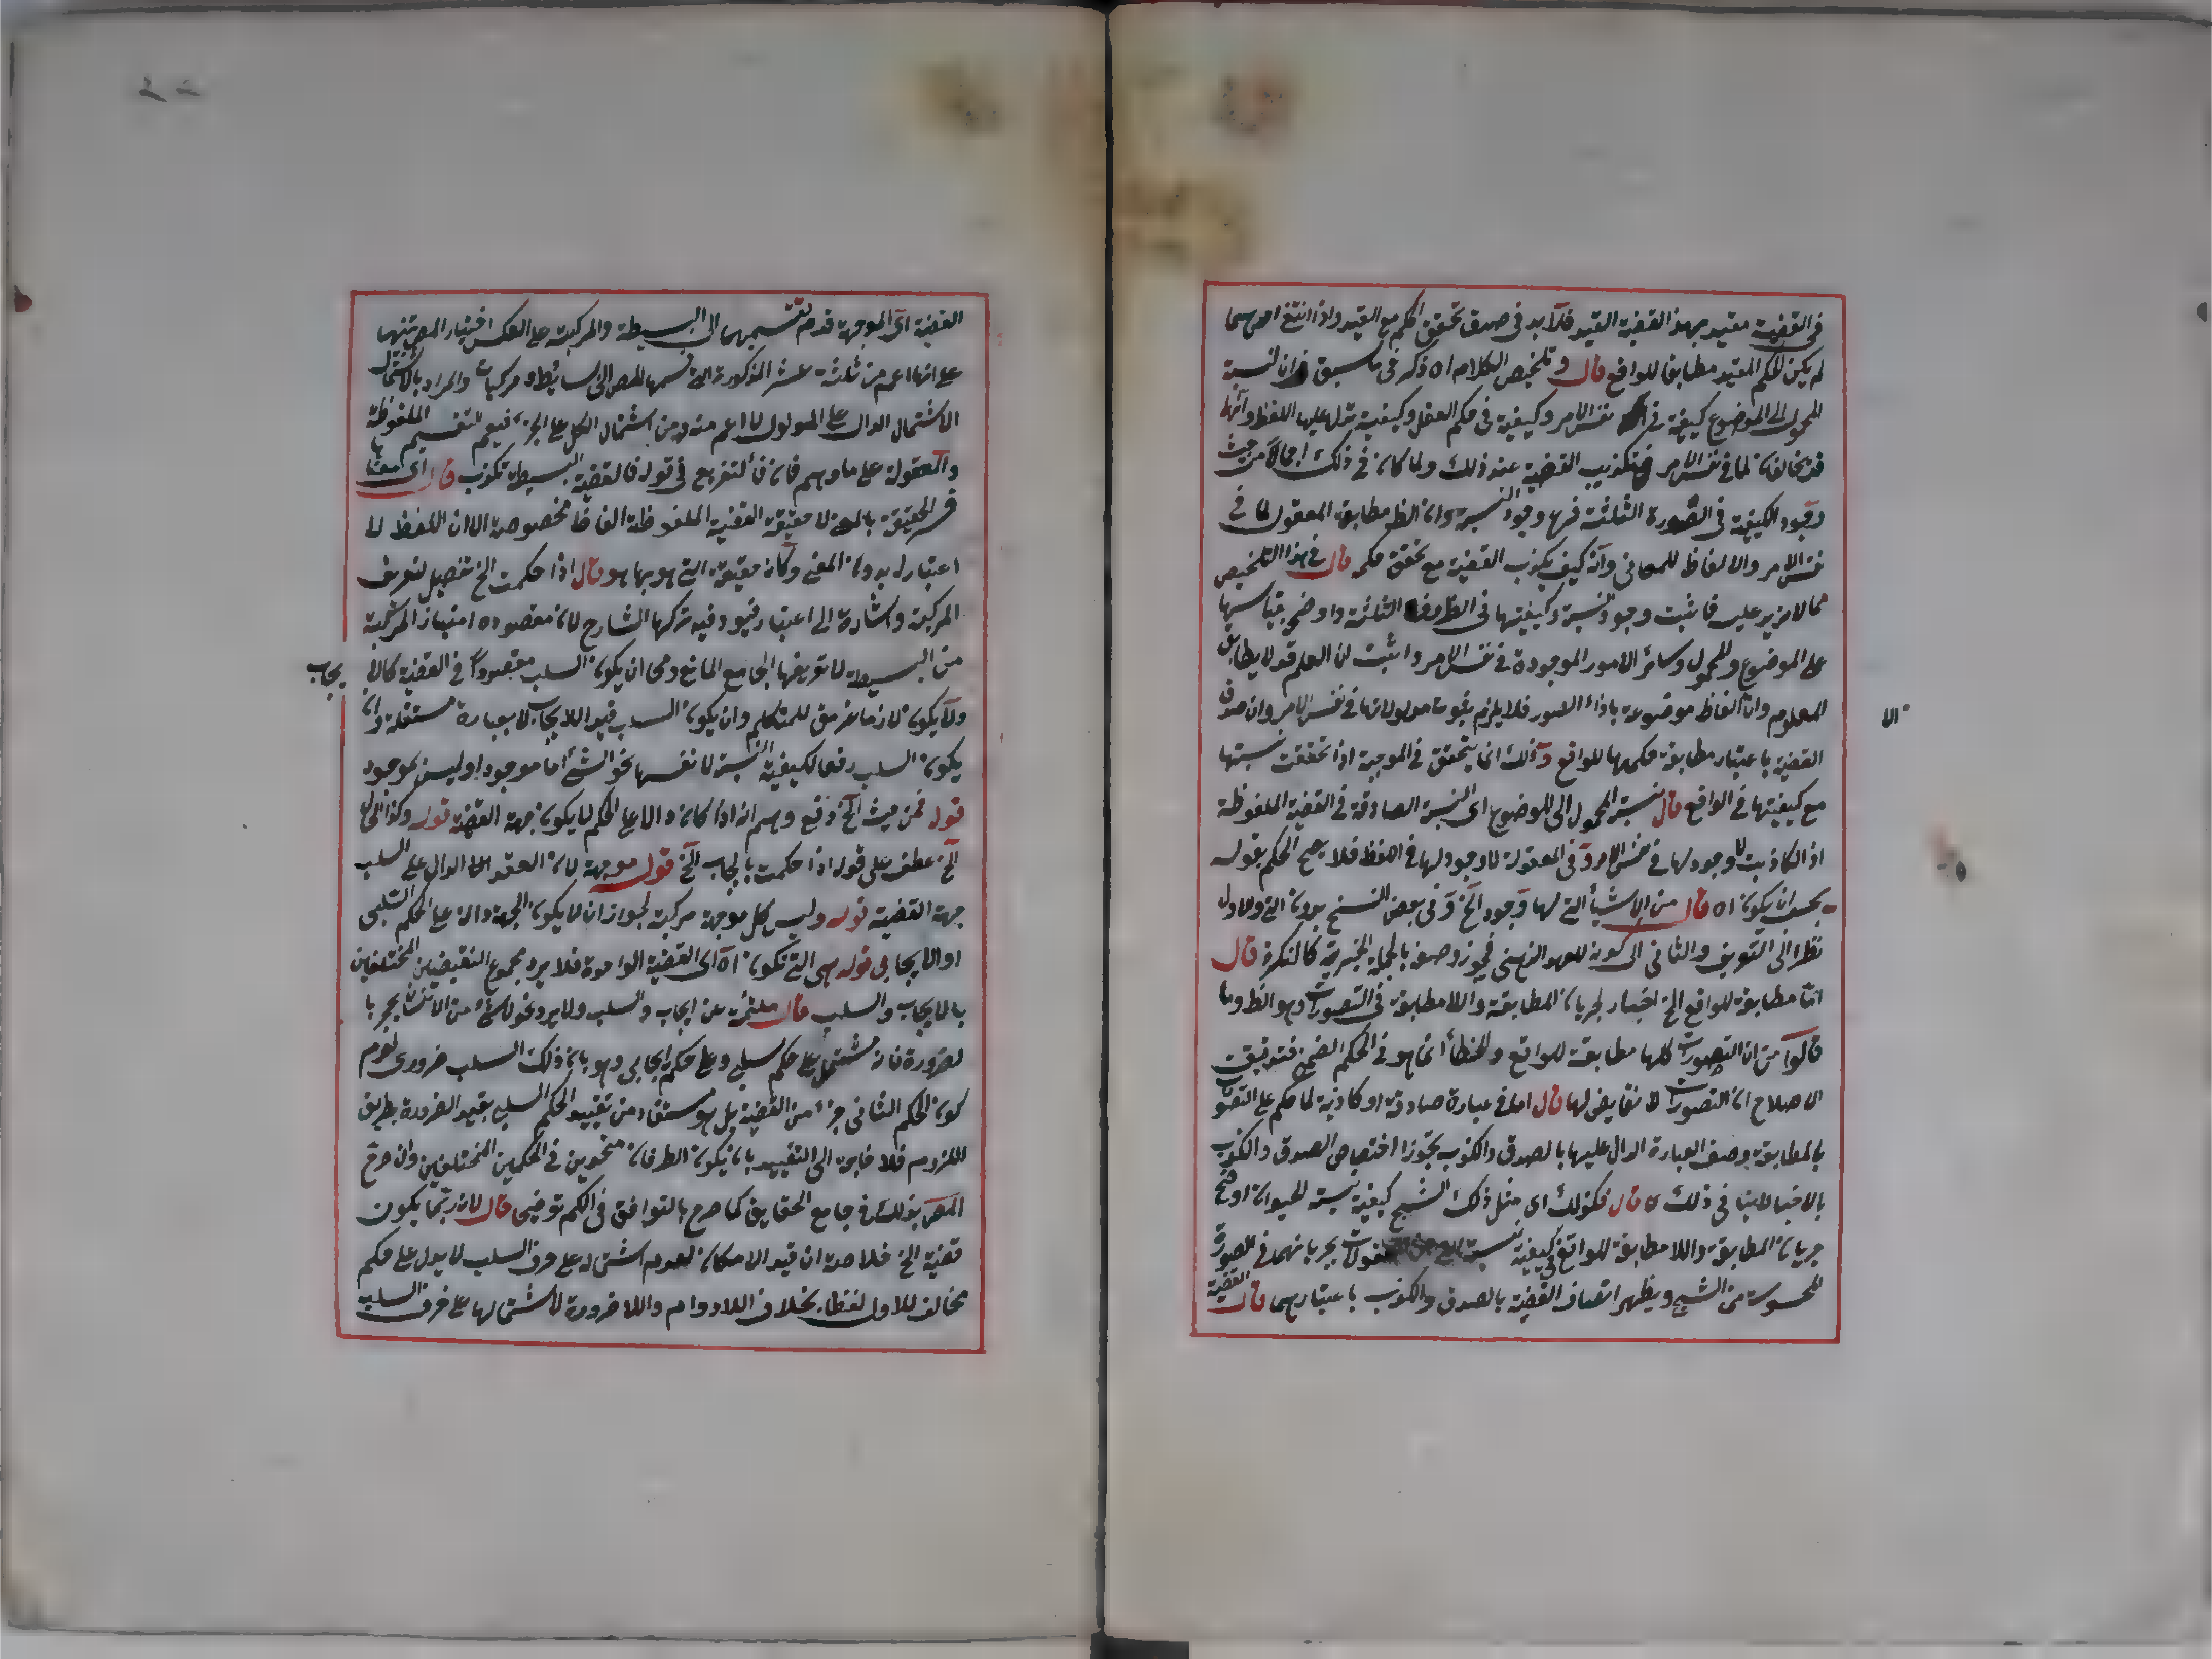 في القضية مقيد بهذا القضية القيد فلا بد في صدق تحقق الحكم مع القيد واذا انتفى احدهما
لم يكن الحكم المقيد مطابقا للواقع قال وتلخيص الكلام اه ذكر في ما سبق ان لنسبة
المحمول الى الموضوع كيفية في نفس الامر وكيفية في حكم العقل وكيفية تدل عليها اللفظ وانها
قد يخالفان لما في نفس الامر فتكذيب القضية عند ذلك ولما كان في ذلك اجمالا من حيث
وجود الكيفية في الصورة الثلثة فرع وجود النسبة وان الظ مطابقة المعقول لما في
نفس الامر والالفاظ للمعاني وانه كيف يكذب القضية مع تحقق حكم قال في هذا التلخيص
مما لا مزيد عليه فاثبت وجود نسبة وكيفيتها في الظروف الثلثة واوضح بقياسها
على الموضوع والمحمول وسائر الامور الموجودة في نفس الامر واثبت ان العلم قد لا يطابق
المعلوم وان الفاظ موضوعة باذاء الصور فلا يلزم ثبوت مدلولاتها في نفس الامر وان صدق
الا
القضية باعتبار مطابقة حكمها للواقع وذلك انما يتحقق في الموجبة اذا تحققت نسبتها
مع كيفيتها في الواقع قال نسبة المحمول الى الموضوع اى النسبة الصادقة في القضية الملفوظة
اذ الكاذبت لا وجود لها في نفس الامر وفي المعقولة لا وجود لها في اللفظ فلا يصح الحكم بقوله
يجب ان يكون اه قال من الاشياء التي لها وجود الخ وفي بعض النسخ بدون التي والاول
نظرا الى التعريف والثاني الى كونه للعهد الذهني فيجوز وصفه بالجملة الخبرية كالنكرة قال
اما مطابقة للواقع الخ اختيار لجريان المطابقة واللامطابقة في التصورات وهو الظ وما
قالوا من ان التصورات كلها مطابقة للواقع والخطأ انما هو في الحكم الضمني فتدقيق
الاصلاح ان التصورات لا نقايض لها قال اما في عبارة صادقة او كاذبة لما حكم على التصورات
بالمطابقة وصف العبارة الدال عليها بالصدق والكذب تجوزا اختصاص الصدق والكذب
بالاخبار لا ينافي ذلك قال فكذلك اى مثل ذلك الشبح كيفية نسبة الحيوان اوضح
جريان المطابقة واللامطابقة للواقع في كيفية نسبة المعقولات بجريانهما في الصورة
المحسوسة من الشبح ويظهر اتصاف القضية بالصدق والكذب باعتبارهما قال القضية
القضية اى الموجهة قدم تقسيمها الى البسيطة والمركبة على العكس اختيار المص تنبيها
على انها اعم من ثلثة عشر المذكورة التي قسمها المص الى بسائط ومركبات والمراد بالاشتمال
الاشتمال الدال على المدلول لا اعم منه ومن اشتمال الكل على الجزء فيعم التقسيم الملفوظة
والمعقولة على ما وهم فان التفريع في قوله فالقضية البسيطة تكذب قال اى معناها
فسر الحقيقة بالمعنى لا حقيقة القضية الملفوظة الفاظ مخصوصة الا ان اللفظ لما
اعتبار له بدون المعنى وكان حقيقة التي هو بها هو قال اذا حكمت الخ تفصيل لتعريف
المركبة واشارة الى اعتبار قيود فيه تركها الشارح لان مقصوده امتياز المركبة
من البسيطة لا تعريفها الجامع المانع ومى ان يكون السلب مقصودا في القضية كالا يجاب
ولا يكون لازما غير مق للمتكلم وان يكون السلب قيد اللايجاب لا بعبارة مستقلة وان
يكون السلب رفعا لكيفية النسبة لا نفسها نحو الشئ اما موجود او ليس بموجود
قوله فمن حيث الخ دفع وهم انه اذا كان دالا على الحكم لا يكون جهة القضية قوله وكذا الى
الخ عطف على قوله اذا حكمت بايجاب الخ قوله موجهة لان العقد الدال على السلب
جهة القضية قوله وليس كل موجهة مركبة لجواز ان لا يكون الجهة دالة على الحكم السلبي
او الايجابي قوله هي التي تكون اه اى القضية الواحدة فلا يرد مجموع النقيضين المختلفين
بالايجاب والسلب قال ملتئمة من ايجاب وسلب ولا يرد نحو لا شئ من الانسان بحجر با
لضرورة فانه مشتمل على حكم سلبي وعلى حكم ايجابي وهو بان ذلك السلب ضرورى لعدم
كون الحكم الثاني جزء من القضية بل هو مستفاد من تقييد الحكم السلبي بقيد الضرورة بطريق
اللزوم فلا حاجة الى التقييد بان يكون الطرفان متحدين في الحكمين المختلفين وان صرح
المص بذلك في جامع الحقايق كما صرح بالتوافق في الكم توضيحا قال لان ربما يكون
قضية الخ خلاصة ان قيد الامكان لعدم اشتماله على حرف السلب لا يدل على حكم
مخالف للاول لفظا بخلاف اللادوام واللا ضرورة لاشتمالها على حرف السلب